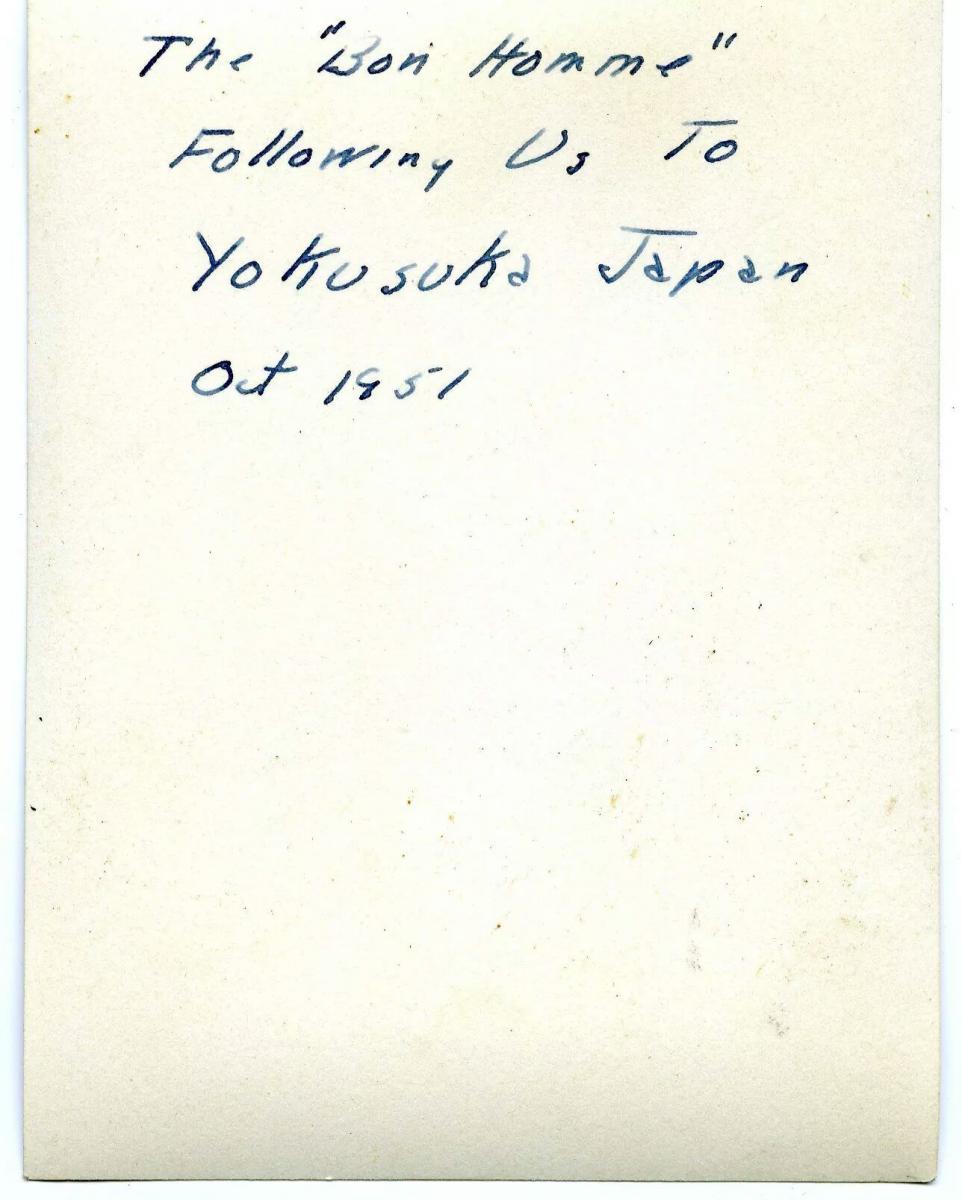 The "Bon Homme"
Following Us To
Yokusuka Japan
Oct 1951